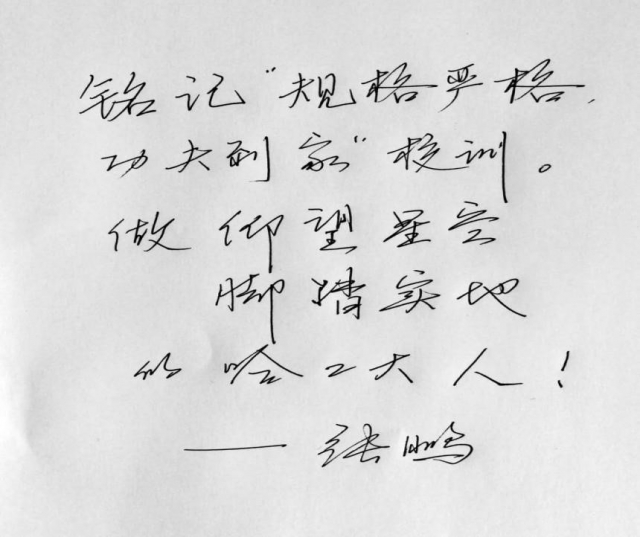 铭记“规格严格,
功夫到家”校训。
做仰望星空
脚踏实地
的哈工大人!
——张鹏